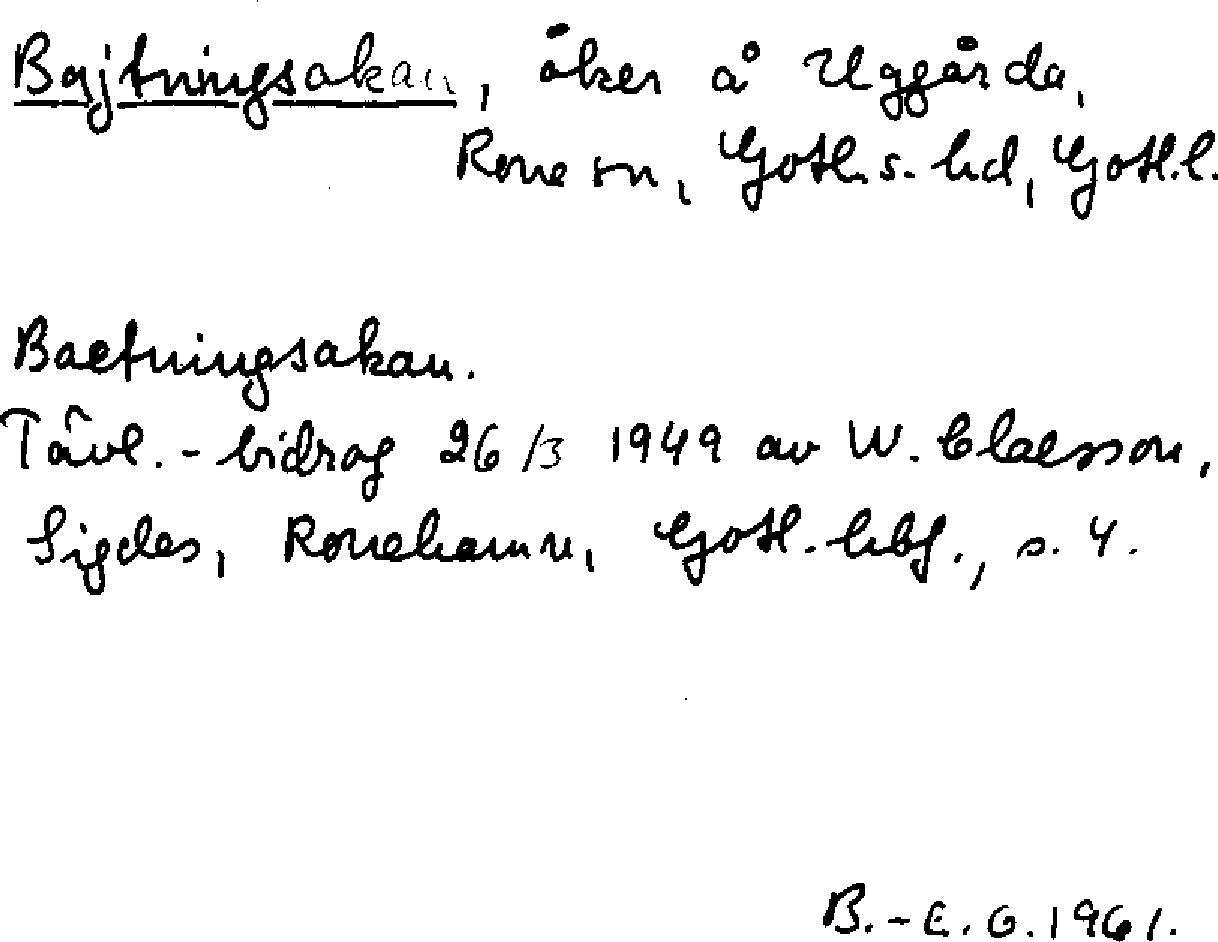 Bajtningsakan, åker å Uggårda,
Rone sn, Gotl. s. hd, Gotl. l.
Baetningsakan.
Tävl.-bidrag 26/3 1949 av W. Claesson,
Sigdes, Ronehamn, Gotl. hbf., s. 4.
B.-E. G. 1961.